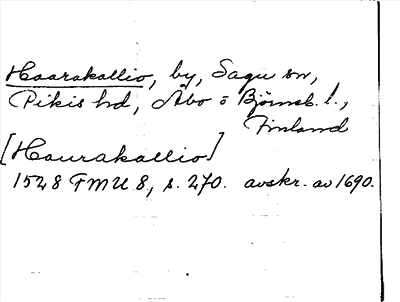 Haarakallio, by, Sagu sn,
Pikis hd, Åbo o Björneb. l.,
Finland
[Haurakallio]
1528 FMU 8, s. 270. avskr. av 1690.